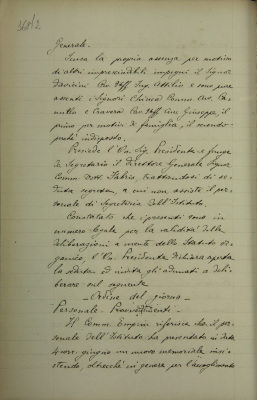 368/2
Generale.
Scusa la propria assenza per motivi
di altri imprescindibili impegni il Signor
Cav. Uff. Ing. Attilio e sono pure
assenti i Signori Chiesa Comm. Avv. Ca-
millo e Craveri Cav. Uff. Avv. Giuseppe, il
primo per motivi di famiglia, il secondo
perchè indisposto.
Presiede l'On. Sig. Presidente e funge
da Segretario il Direttore Generale Signor
Comm. Dott. trattandosi di se-
duta segreta, a cui non assiste il per-
sonale di Segreteria dell'Istituto.
Constatato che i presenti sono in
numero legale per la validità delle
deliberazioni a mente dello Statuto or-
ganico, l'On. Presidente dichiara aperta
la seduta ed invita gli adunati a deli-
berare sul seguente
- Ordine del giorno -
Personale - Provvedimenti -
Il Comm. riferisce che il per-
sonale dell'Istituto ha presentato in data
4 corr. giugno un nuovo memoriale insi-
stendo, oltrechè in genere per l'accoglimento